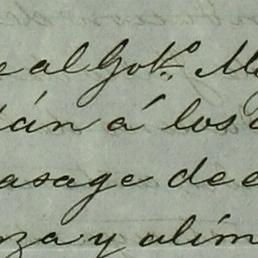 e al Gob.º M
ián á los
asage de e
nza y alim